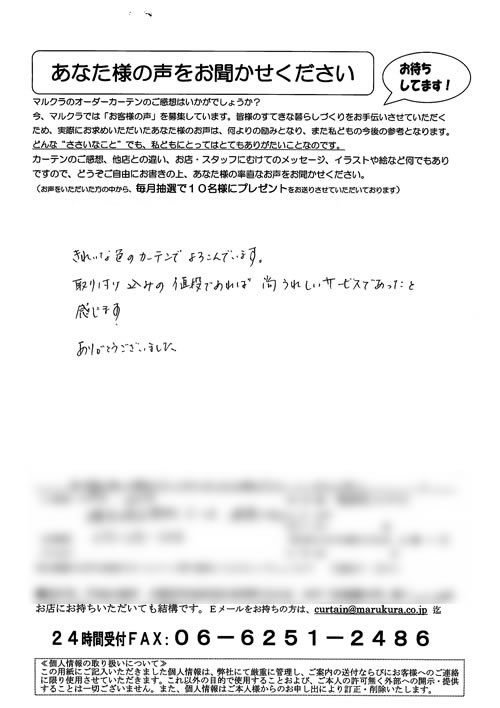 あなた様の声をお聞かせください
お待ち
してます！
マルクラのオーダーカーテンのご感想はいかがでしょうか？
今、マルクラでは「お客様の声」を募集しています。皆様のすてきな暮らしづくりをお手伝いさせていただく
ため、実際にお求めいただいたあなた様のお声は、何よりの励みとなり、また私どもの今後の参考となります。
どんな“ささいなこと”でも、私どもにとってはとてもありがたいことなのです。
カーテンのご感想、他店との違い、お店・スタッフにむけてのメッセージ、イラストや絵など何でもあり
ですので、どうぞご自由にお書きの上、あなた様の率直なお声をお聞かせください。
（お声をいただいた方の中から、毎月抽選で１０名様にプレゼントをお送りさせていただいております）
きれいな色のカーテンで よろこんでいます。
取り付け 込みの 値段であれば 尚 うれしいサービスであったと
感じます
ありがとうございました
お店にお持ちいただいても結構です。Ｅメールをお持ちの方は、curtain@marukura.co.jp 迄
２４時間受付FAX：０６－６２５１－２４８６
≪個人情報の取り扱いについて≫
この用紙にご記入いただきました個人情報は、弊社にて厳重に管理し、ご案内の送付ならびにお客様へのご連絡
に限り使用させていただきます。これ以外の目的で使用することおよび、ご本人の許可無く外部への開示・提供
することは一切ございません。また、個人情報はご本人様からのお申し出により訂正・削除いたします。